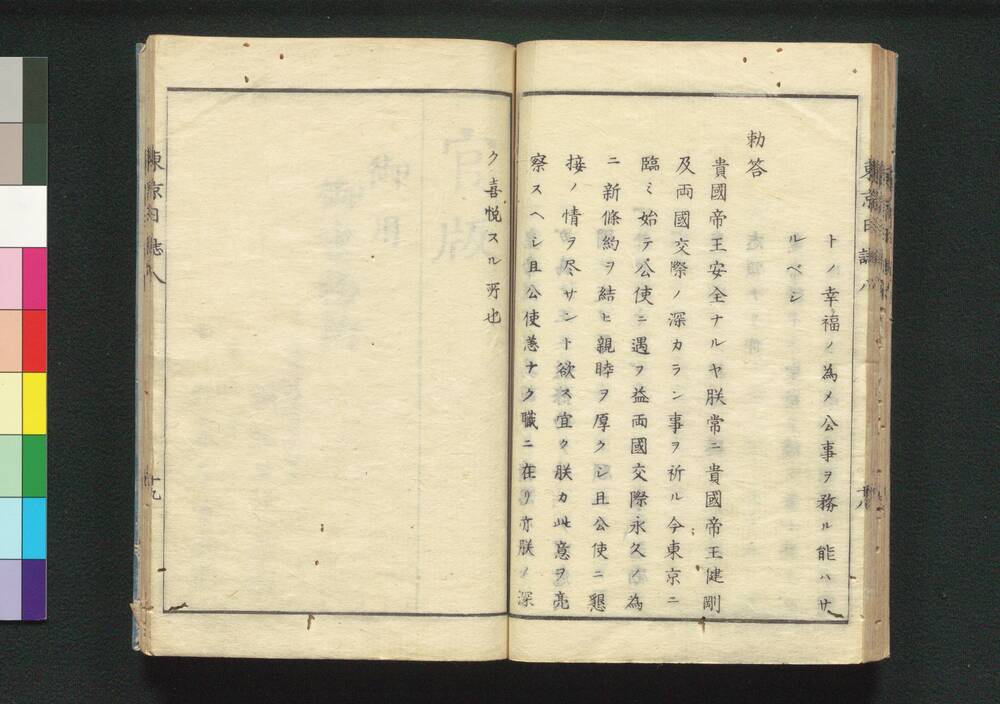 トノ幸福ノ為メ公事ヲ務ル能ハサ
ルベシ
勅答
貴國帝王安全ナルヤ朕常ニ貴國帝王健剛
及両國交際ノ深カラン事ヲ祈ル今東京ニ
臨ミ始テ公使ニ遇フ益両國交際永久ノ為
ニ新條約ヲ結ヒ親睦ヲ厚クシ且公使ニ懇
接ノ情ヲ尽サント欲ス宜ク朕カ此意ヲ亮
察スヘシ且公使恙ナク職ニ在リ亦朕ノ深
ク喜悦スル所也
東京日誌八
十九